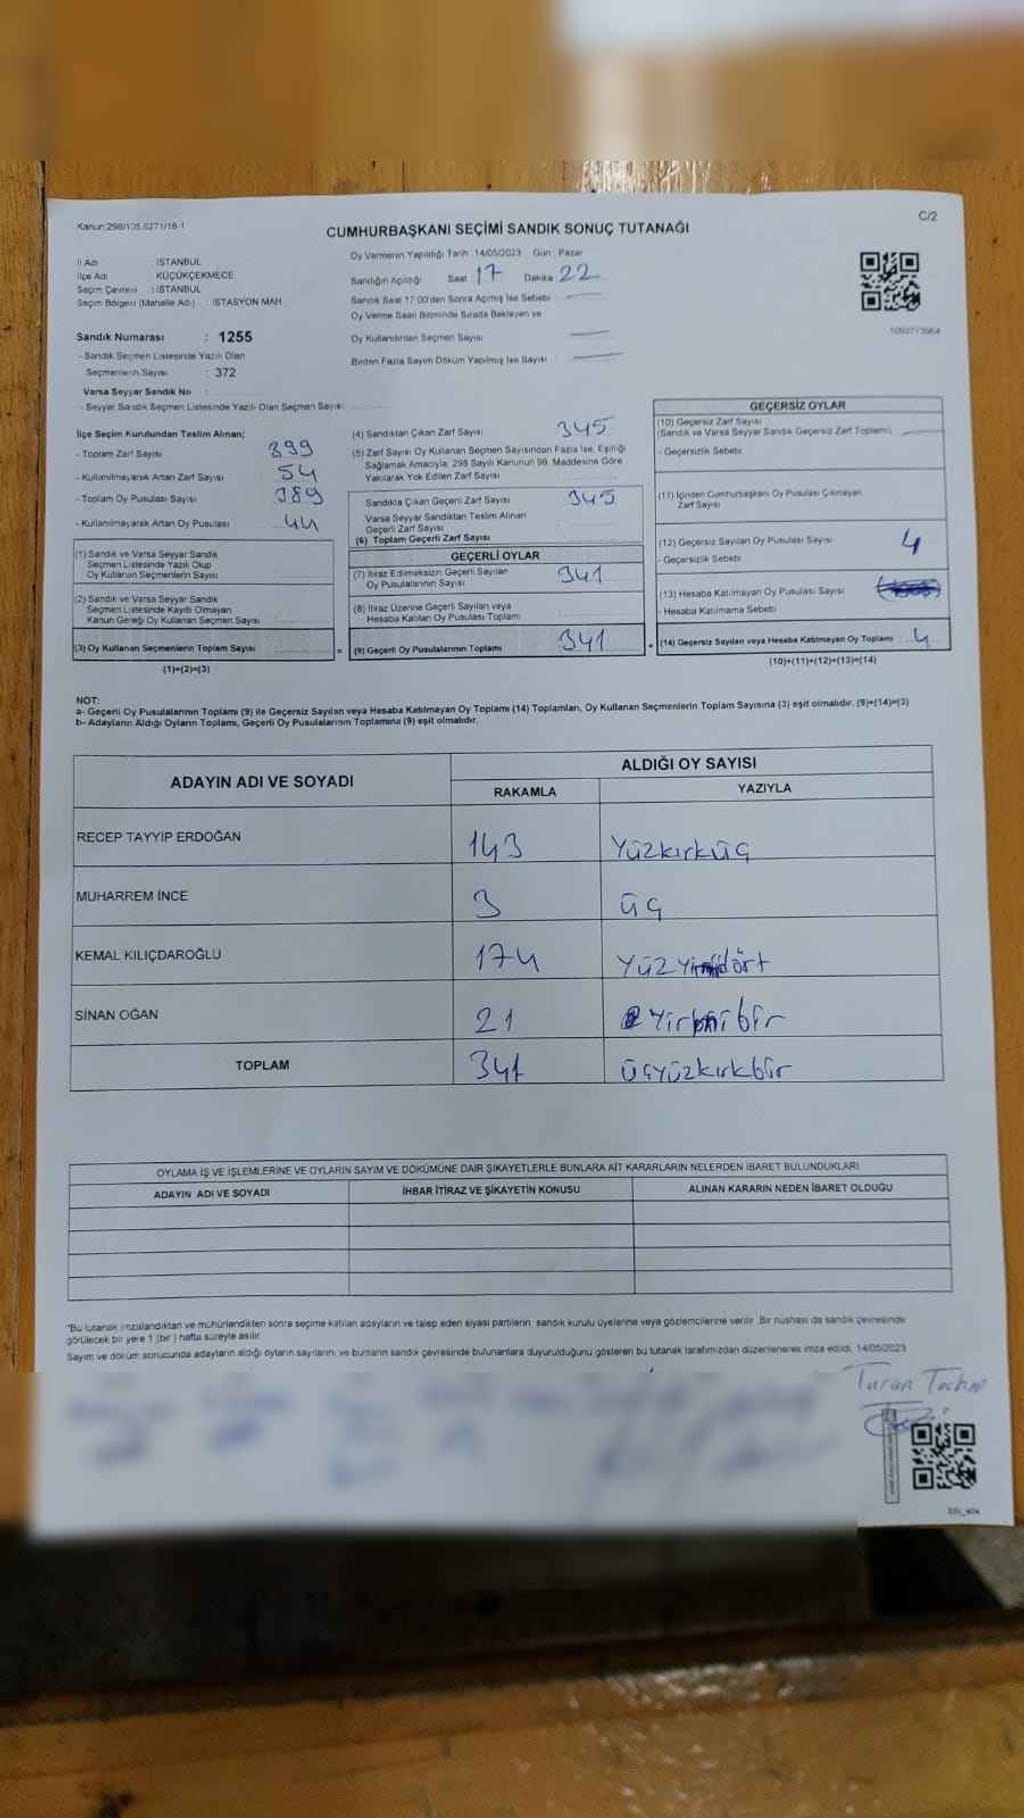 Kanun:298/105,6271/18-1
C/2
CUMHURBAŞKANI SEÇİMİ SANDIK SONUÇ TUTANAĞI
İl Adı : İSTANBUL
İlçe Adı : KÜÇÜKÇEKMECE
Seçim Çevresi : İSTANBUL
Seçim Bölgesi (Mahalle Adı) : İSTASYON MAH.
Sandık Numarası : 1255
- Sandık Seçmen Listesinde Yazılı Olan
Seçmenlerin Sayısı : 372
Varsa Seyyar Sandık No :
- Seyyar Sandık Seçmen Listesinde Yazılı Olan Seçmen Sayısı:
Oy Vermenin Yapıldığı Tarih : 14/05/2023 Gün : Pazar
Sandığın Açıldığı Saat : 17 Dakika 22
Sandık Saat 17:00'den Sonra Açılmış İse Sebebi
Oy Verme Saati Bitiminde Sırada Bekleyen ve
Oy Kullandırılan Seçmen Sayısı
Birden Fazla Sayım Döküm Yapılmış İse Sayısı
İlçe Seçim Kurulundan Teslim Alınan;
- Toplam Zarf Sayısı 399
- Kullanılmayarak Artan Zarf Sayısı 54
- Toplam Oy Pusulası Sayısı 389
- Kullanılmayarak Artan Oy Pusulası 44
(1) Sandık ve Varsa Seyyar Sandık
Seçmen Listesinde Yazılı Olup
Oy Kullanan Seçmenlerin Sayısı
(2) Sandık ve Varsa Seyyar Sandık
Seçmen Listesinde Kayıtlı Olmayan
Kanun Gereği Oy Kullanan Seçmen Sayısı
(3) Oy Kullanan Seçmenlerin Toplam Sayısı
(1)+(2)=(3)
(4) Sandıktan Çıkan Zarf Sayısı 345
(5) Zarf Sayısı Oy Kullanan Seçmen Sayısından Fazla İse, Eşitliği
Sağlamak Amacıyla; 298 Sayılı Kanunun 98. Maddesine Göre
Yakılarak Yok Edilen Zarf Sayısı
Sandıkta Çıkan Geçerli Zarf Sayısı 345
Varsa Seyyar Sandıktan Teslim Alınan
Geçerli Zarf Sayısı
(6) Toplam Geçerli Zarf Sayısı
GEÇERLİ OYLAR
(7) İtiraz Edilmeksizin Geçerli Sayılan
Oy Pusulalarının Sayısı 341
(8) İtiraz Üzerine Geçerli Sayılan veya
Hesaba Katılan Oy Pusulası Toplamı
= (9) Geçerli Oy Pusulalarının Toplamı 341
GEÇERSİZ OYLAR
(10) Geçersiz Zarf Sayısı
(Sandık ve Varsa Seyyar Sandık Geçersiz Zarf Toplamı)
- Geçersizlik Sebebi:
(11) İçinden Cumhurbaşkanı Oy Pusulası Çıkmayan
Zarf Sayısı
(12) Geçersiz Sayılan Oy Pusulası Sayısı 4
- Geçersizlik Sebebi:
(13) Hesaba Katılmayan Oy Pusulası Sayısı
- Hesaba Katılmama Sebebi:
+ (14) Geçersiz Sayılan veya Hesaba Katılmayan Oy Toplamı 4
(10)+(11)+(12)+(13)=(14)
NOT:
a- Geçerli Oy Pusulalarının Toplamı (9) ile Geçersiz Sayılan veya Hesaba Katılmayan Oy Toplamı (14) Toplamları, Oy Kullanan Seçmenlerin Toplam Sayısına (3) eşit olmalıdır. (9)+(14)=(3)
b- Adayların Aldığı Oyların Toplamı, Geçerli Oy Pusulalarının Toplamına (9) eşit olmalıdır.
ADAYIN ADI VE SOYADI
ALDIĞI OY SAYISI
RAKAMLA YAZIYLA
RECEP TAYYİP ERDOĞAN 143 Yüzkırküç
MUHARREM İNCE 3 üç
KEMAL KILIÇDAROĞLU 174 yüz dört
SİNAN OĞAN 21 Yirmibir
TOPLAM 341 üçyüzkırkbir
OYLAMA İŞ VE İŞLEMLERİNE VE OYLARIN SAYIM VE DÖKÜMÜNE DAİR ŞİKAYETLERLE BUNLARA AİT KARARLARIN NELERDEN İBARET BULUNDUKLARI
ADAYIN ADI VE SOYADI İHBAR İTİRAZ VE ŞİKAYETİN KONUSU ALINAN KARARIN NEDEN İBARET OLDUĞU
*Bu tutanak imzalandıktan ve mühürlendikten sonra seçime katılan adayların ve talep eden siyasi partilerin sandık kurulu üyelerine veya gözlemcilerine verilir. Bir nüshası da sandık çevresinde
görülecek bir yere 1 (bir) hafta süreyle asılır.
Sayım ve döküm sonucunda adayların aldığı oyların sayılarını ve bunların sandık çevresinde bulunanlara duyurulduğunu gösteren bu tutanak tarafımızdan düzenlenerek imza edildi. 14/05/2023
Turan